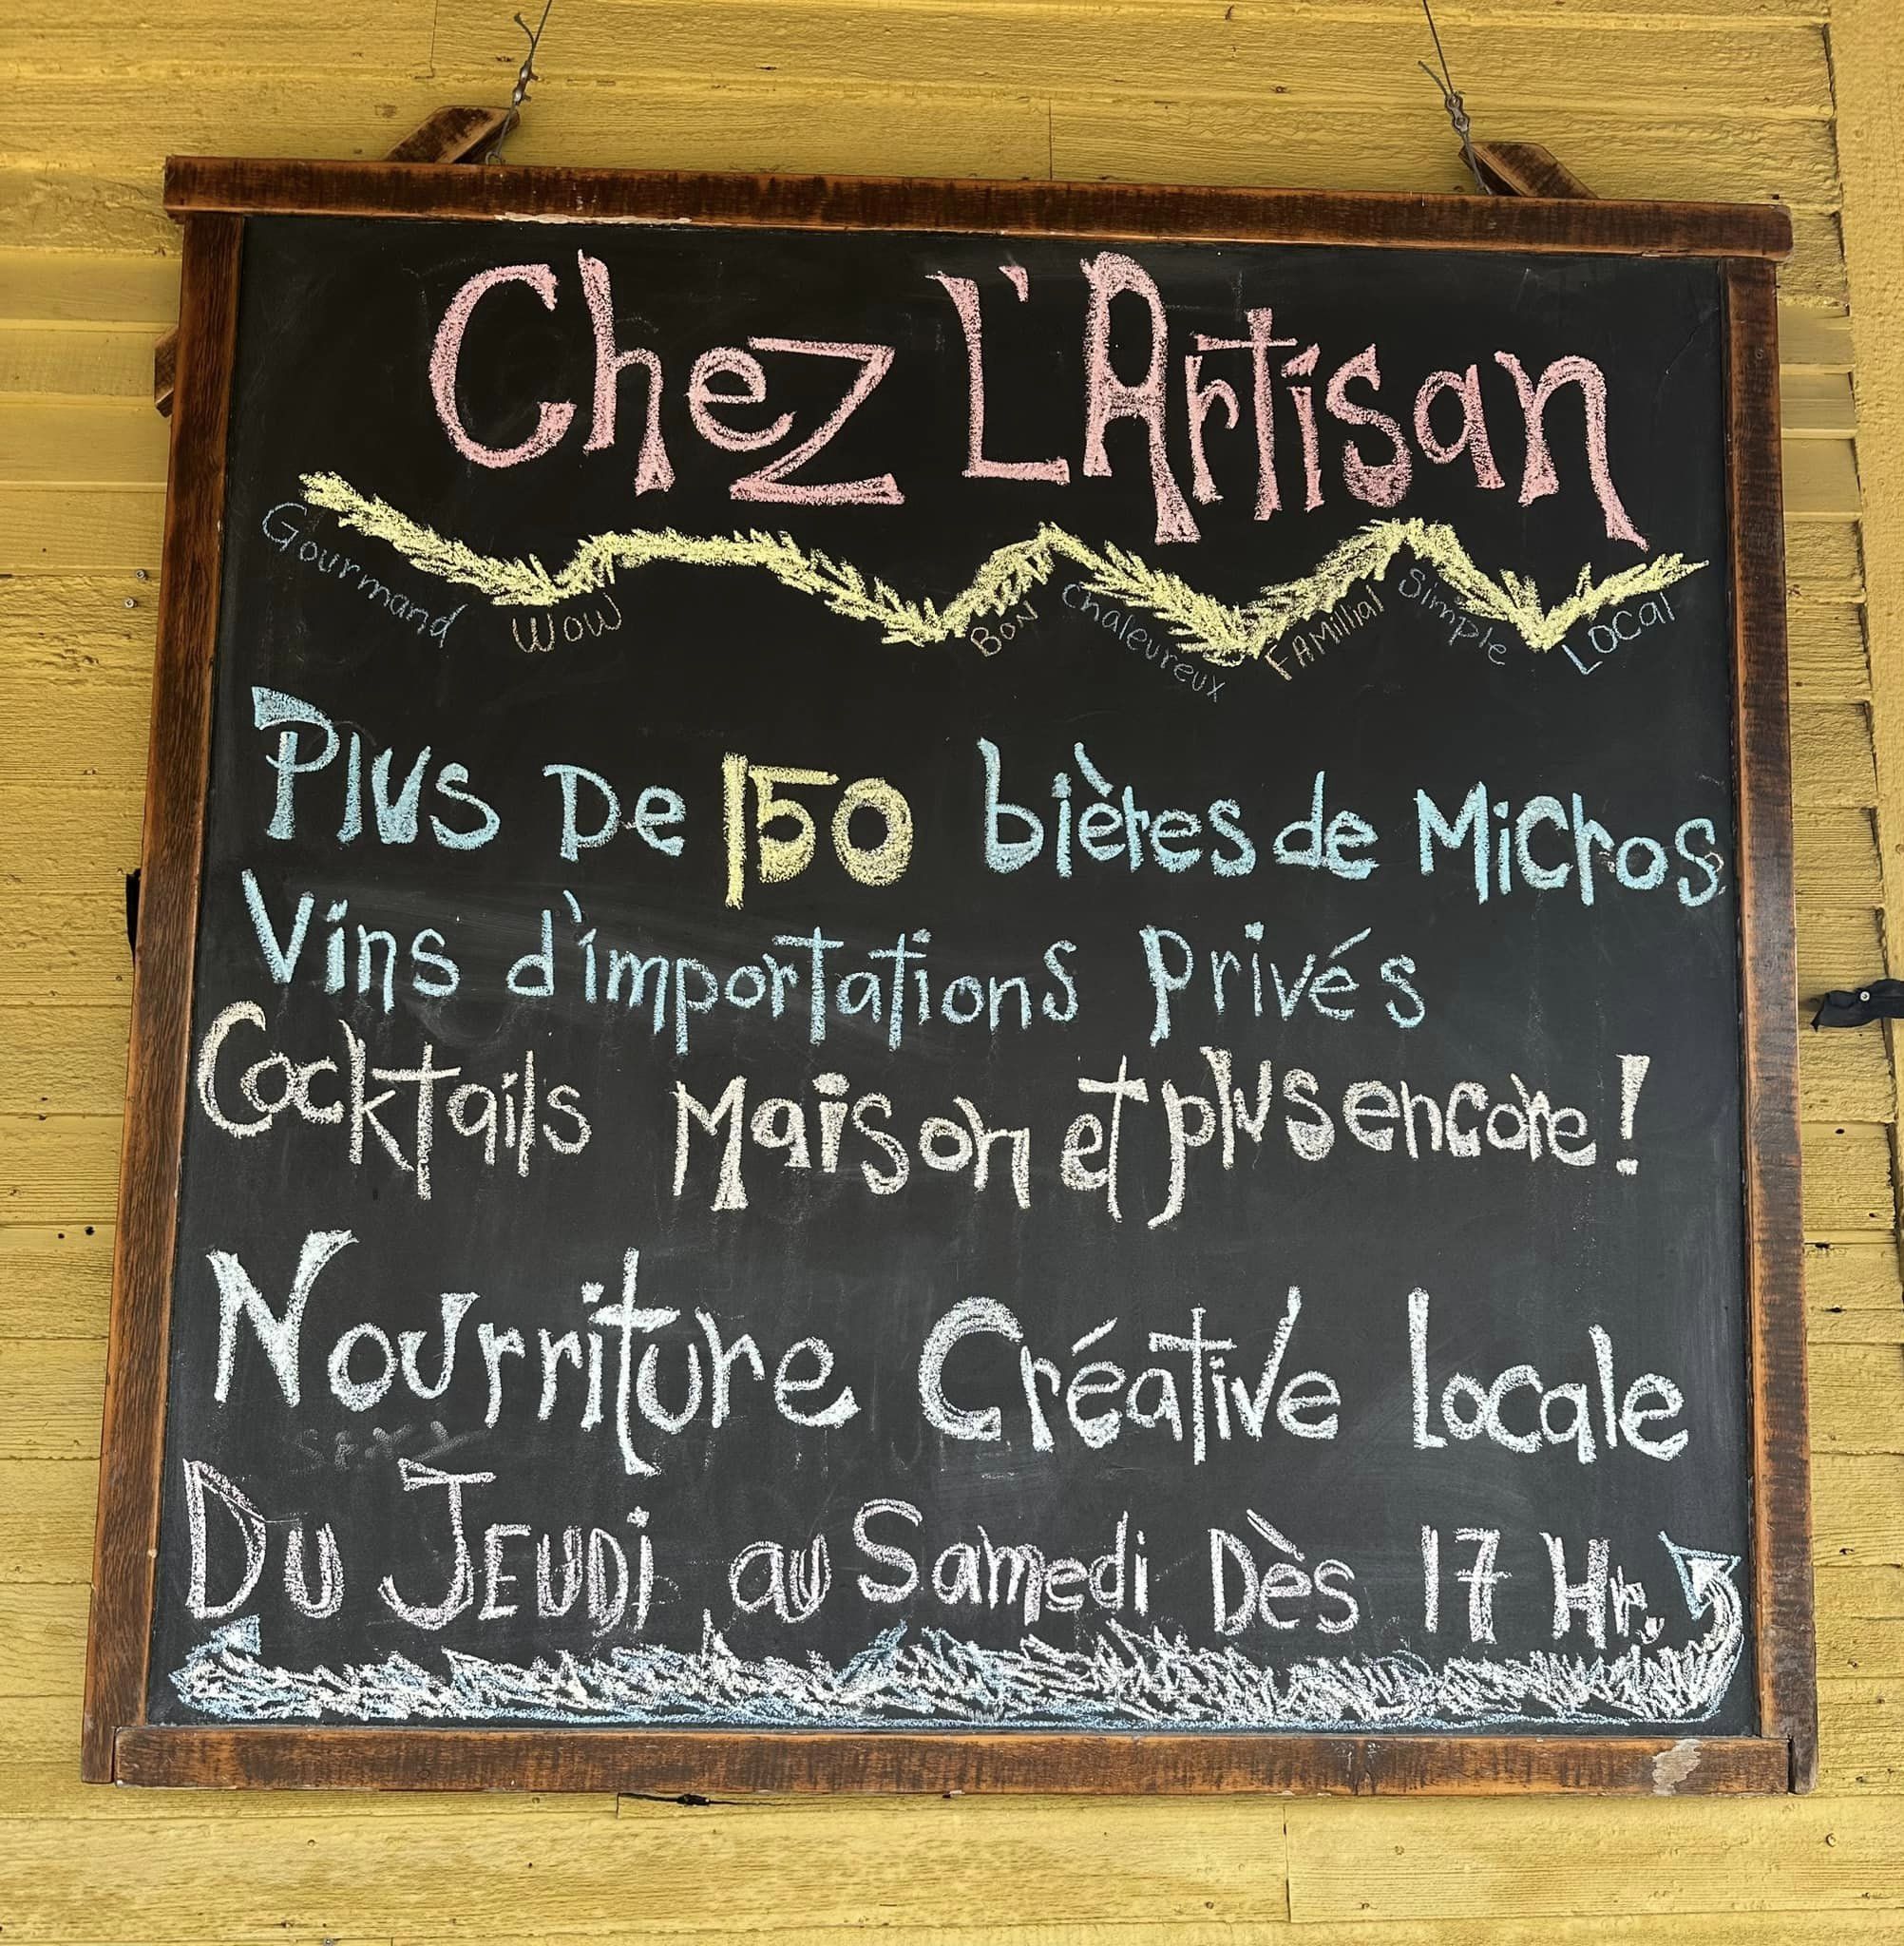 Chez L'Artisan
Gourmand Wow Bon Chaleureux FAMillial Simple Local
Plus De 150 bières de Micros
Vins d'importations privés
Cocktails Maison et plus encore!
Nourriture Créative Locale
Du Jeudi au Samedi Dès 17 Hr.